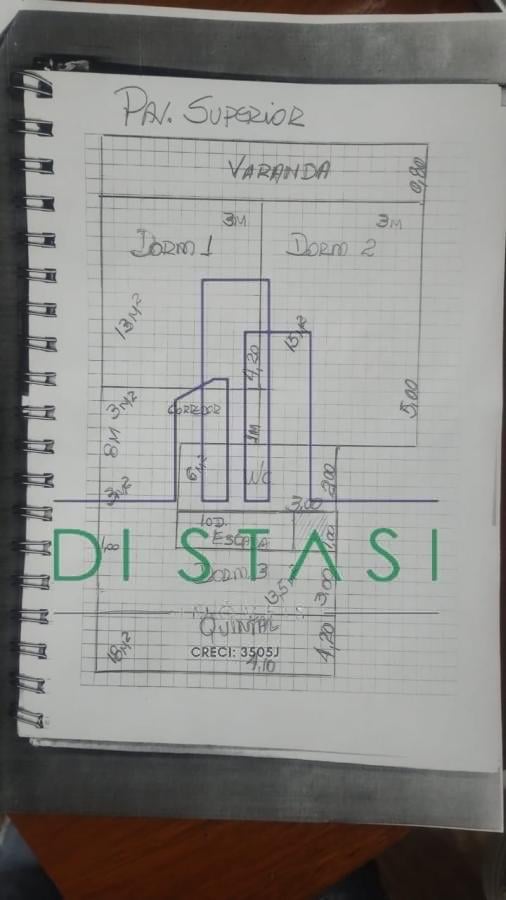 PAV. SUPERIOR
VARANDA
0,80
3M
3M
DORM 1
DORM 2
13M²
15M²
4,20
5,00
3M²
CORREDOR
8M
1M
6M²
WC
2,00
3M²
3,00
ESCADA
1,00
1,00
DISTASI
DORM 3
13,5M²
3,00
QUINTAL
CRECI: 3505J
18M²
4,10
4,20